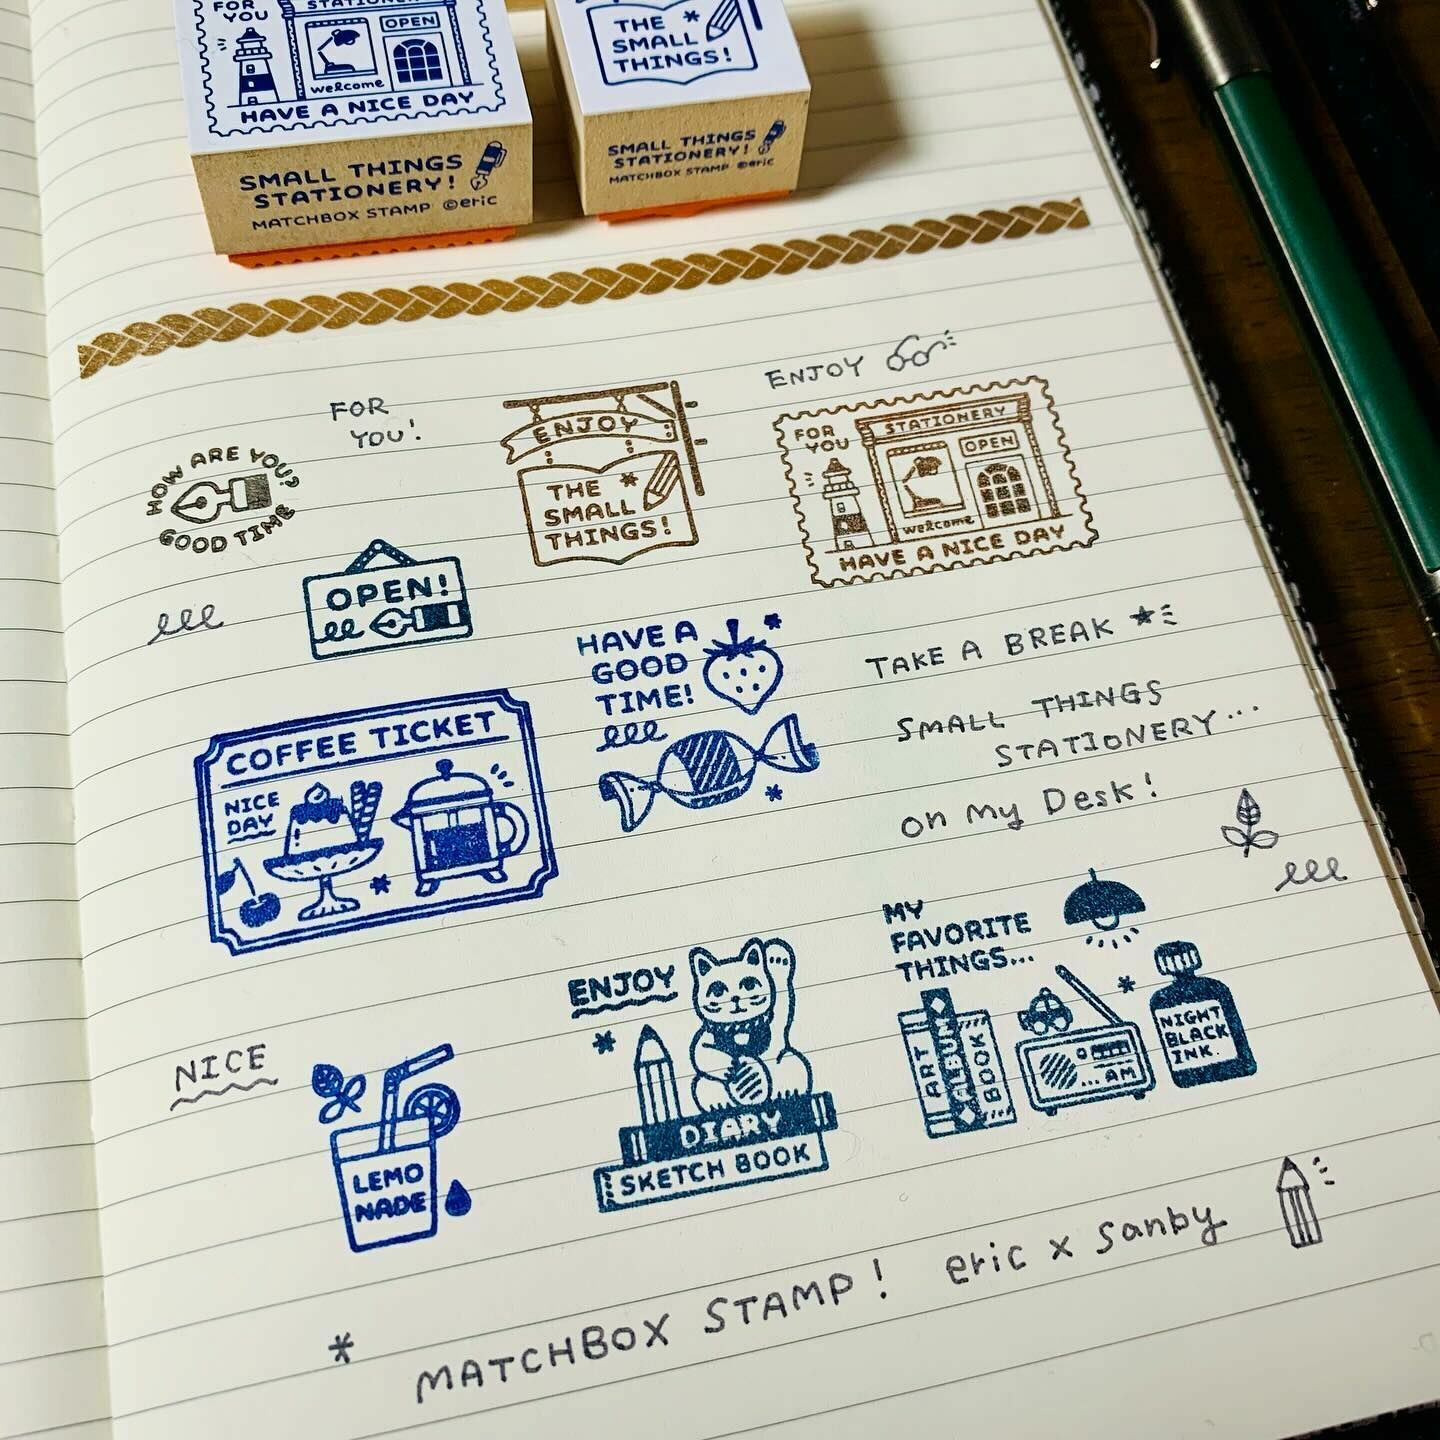 FOR
YOU
STATIONERY
OPEN
welcome
HAVE A NICE DAY
SMALL THINGS
STATIONERY!
MATCHBOX STAMP ©eric
THE
SMALL
THINGS!
SMALL THINGS
STATIONERY!
MATCHBOX STAMP ©eric
HOW ARE YOU?
GOOD TIME
FOR
YOU!
ENJOY
THE
SMALL
THINGS!
ENJOY
FOR
YOU
STATIONERY
OPEN
welcome
HAVE A NICE DAY
OPEN!
HAVE A
GOOD
TIME!
TAKE A BREAK
SMALL THINGS
STATIONERY...
on my Desk!
COFFEE TICKET
NICE
DAY
MY
FAVORITE
THINGS...
ART
ALBUM
BOOK
...AM
NIGHT
BLACK
INK.
ENJOY
DIARY
SKETCH BOOK
NICE
LEMO
NADE
* MATCHBOX STAMP! eric x sanby